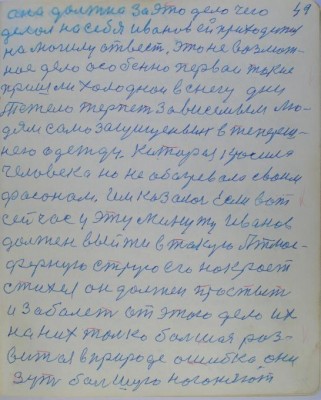 она должна За это дело чего
49
делол на себя иванов ей приходитц
на могилу ответ. Это не возмож-
ное дело особенно первои такие
пришли холоднои в снегу дни
Тяжело терпет Зависемым лю-
дям само защищеных в тепереш-
него одежду. Которые красила
человека но не обагревала своим
фасоном. Им казалос Если вот
сейчас у эту минуту Иванов
должен выйти в такую Атмос-
ферную струю его накроет
стихия он должен простыт
и Заболет от этого дело их
на них толко болшая раз-
вится в природе ошибка они
Зут балшую ногоняют